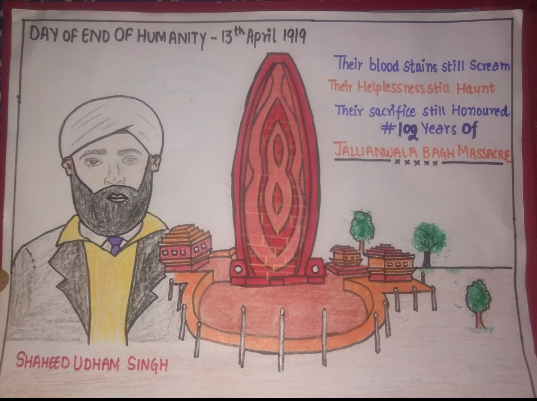 DAY OF END OF HUMANITY - 13th April 1919
Their blood stains still Scream
Their Helplessness still Haunt
Their sacrifice still Honoured
#102 Years Of
JALLIANWALA BAGH MASSACRE
SHAHEED UDHAM SINGH